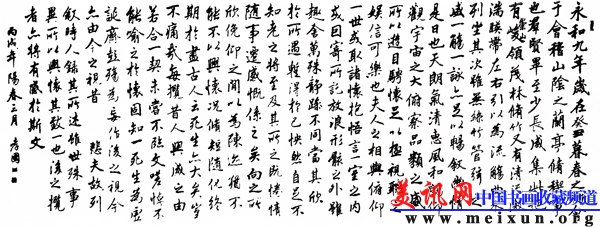 永和九年歲在癸丑暮春之初會
于會稽山陰之蘭亭脩稧事
也羣賢畢至少長咸集此地
有崇山峻領茂林脩竹又有清流激
湍暎帶左右引以為流觴曲水
列坐其次雖無絲竹管弦之
盛一觴一詠亦足以暢叙幽情
是日也天朗氣清惠風和暢仰
觀宇宙之大俯察品類之盛
所以遊目騁懷足以極視聽之
娛信可樂也夫人之相與俯仰
一世或取諸懷抱悟言一室之內
或因寄所託放浪形骸之外雖
趣舍萬殊靜躁不同當其欣
於所遇暫得於己快然自足不
知老之將至及其所之既惓情
隨事遷感慨係之矣向之所
欣俛仰之間以為陳迹猶不
能不以之興懷況脩短隨化終
期於盡古人云死生亦大矣豈
不痛哉每攬昔人興感之由
若合一契未嘗不臨文嗟悼不
能喻之於懷固知一死生為虛
誕齊彭殤為妄作後之視今
亦由今之視昔 悲夫故列
叙時人錄其所述雖世殊事
異所以興懷其致一也後之攬
者亦將有感於斯文
丙戌年陽春三月
美讯网
中国书画收藏频道
www.meixun.org